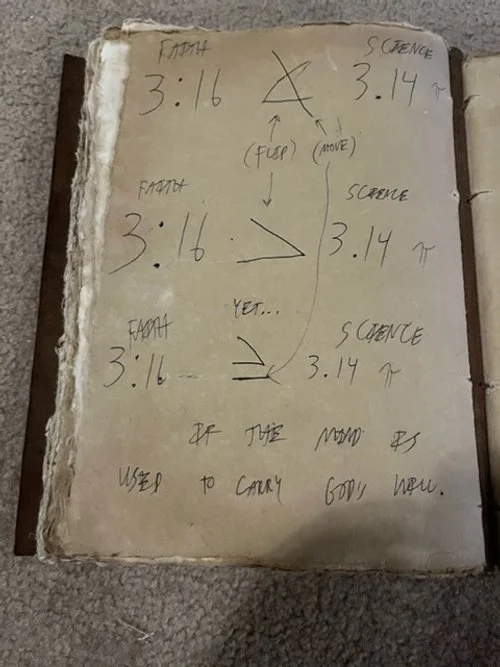 FAITH SCIENCE
3:16 3.14 π
(FLIP) (MOVE)
FAITH SCIENCE
3:16 > 3.14 π
YET...
FAITH SCIENCE
3:16 ≥ 3.14 π
IF THE MIND IS
USED TO CARRY GOD'S WILL.